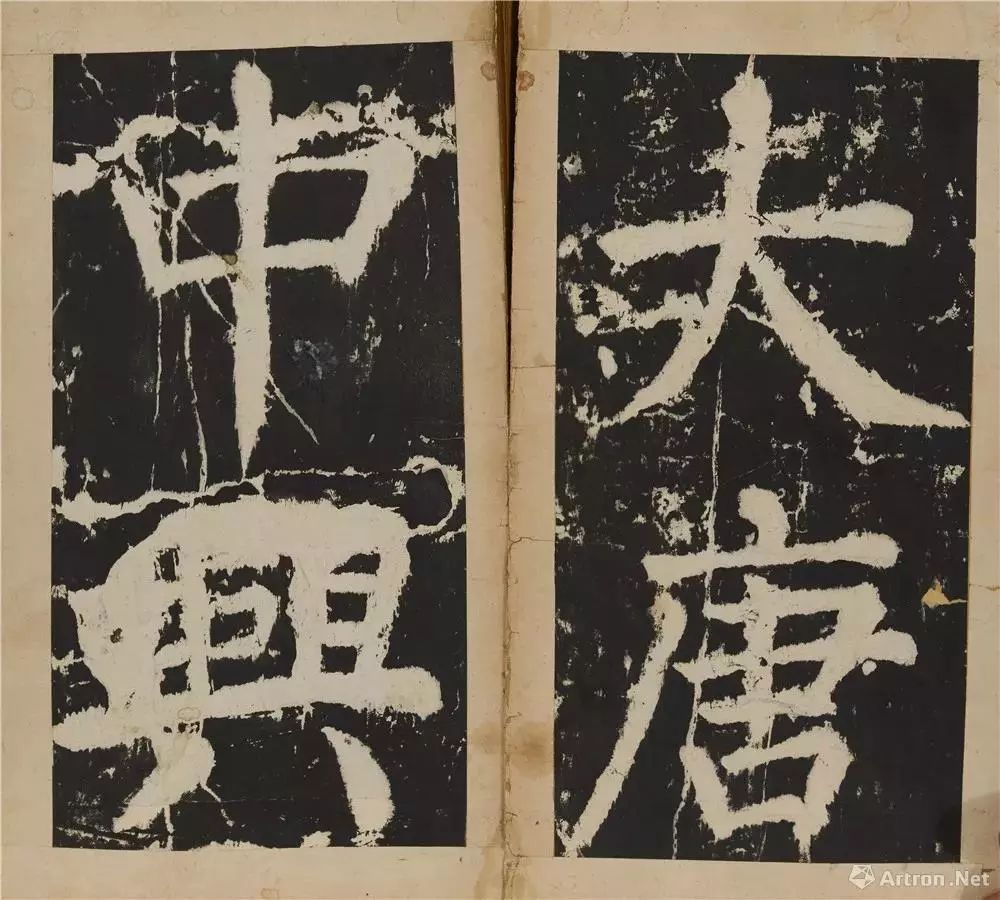 大唐
中興
Artron.Net